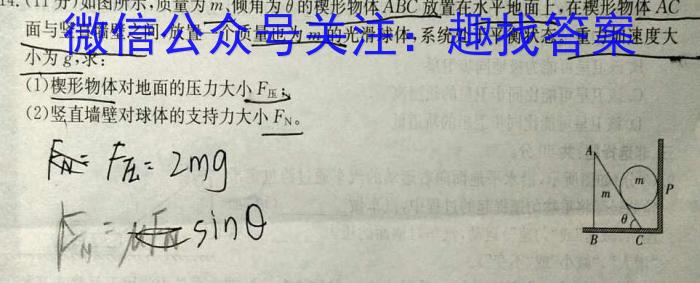 14.(11分)如图所示,质量为m、倾角为θ的楔形物体ABC放置在水平地面上,在楔形物体AC
面与竖直墙壁之间,放置一个质量也为m的光滑球体,系统处于平衡状态。重力加速度大
微信公众号关注：趣找答案
小为g,求:
(1)楔形物体对地面的压力大小F压;
(2)竖直墙壁对球体的支持力大小FN。
F压=2mg
FN=
sinθ
A
m
m
P
θ
B
C